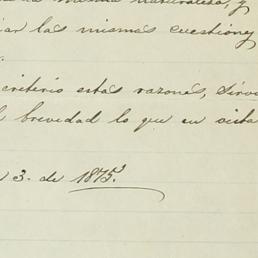 misma naturaleza, y
iar las mismas cuestiones
criterio estas razones, sirva
brevedad lo que en vista
3. de 1875.